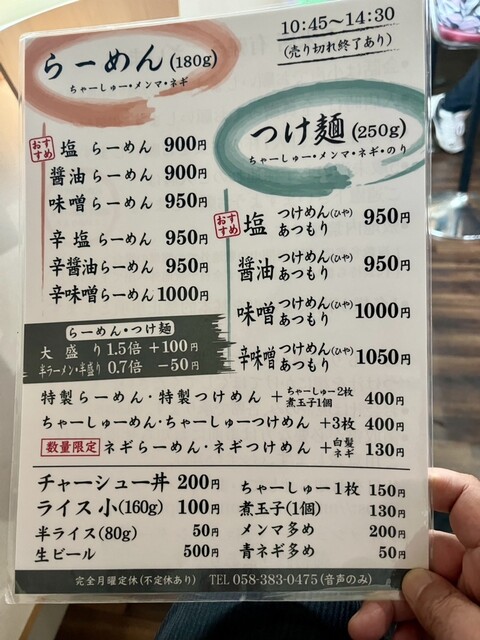 10:45～14:30
(売り切れ終了あり)
らーめん(180g)
ちゃーしゅー・メンマ・ネギ
おすすめ 塩 らーめん 900円
醤油らーめん 900円
味噌らーめん 950円
辛 塩らーめん 950円
辛醤油らーめん 950円
辛味噌らーめん 1000円
つけ麺(250g)
ちゃーしゅー・メンマ・ネギ・のり
おすすめ 塩 つけめん(ひや) あつもり 950円
醤油 つけめん(ひや) あつもり 950円
味噌 つけめん(ひや) あつもり 1000円
辛味噌 つけめん(ひや) あつもり 1050円
らーめん・つけ麺
大 盛 り 1.5倍 +100円
半ラーメン・半盛り 0.7倍 －50円
特製らーめん・特製つけめん +ちゃーしゅー2枚 煮玉子1個 400円
ちゃーしゅーめん・ちゃーしゅーつけめん +3枚 400円
数量限定 ネギらーめん・ネギつけめん +白髪ネギ 130円
チャーシュー丼 200円
ライス 小(160g) 100円
半ライス(80g) 50円
生ビール 500円
ちゃーしゅー1枚 150円
煮玉子(1個) 130円
メンマ多め 200円
青ネギ多め 50円
完全月曜定休(不定休あり) TEL 058-383-0475(音声のみ)